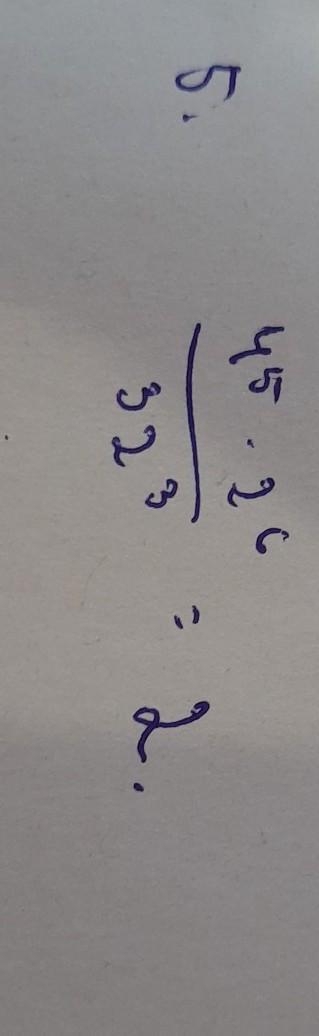 5.
4⁵ · 2⁶
32³ = 2.